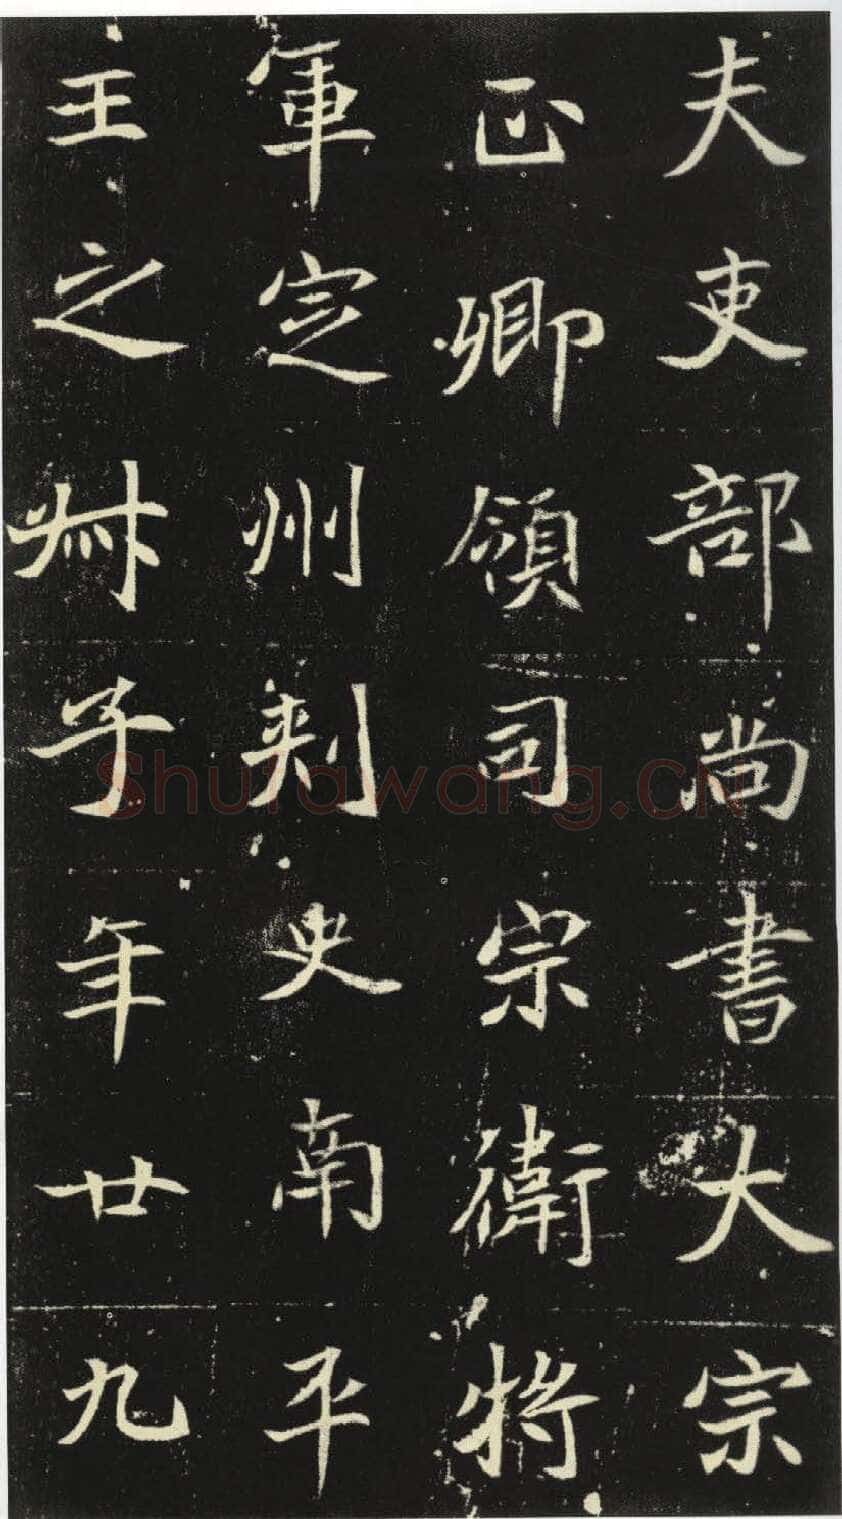 夫吏部尚書大宗
正卿領司宗衛將
軍定州刾史南平
主之叔子年廿九
shufawang.cn